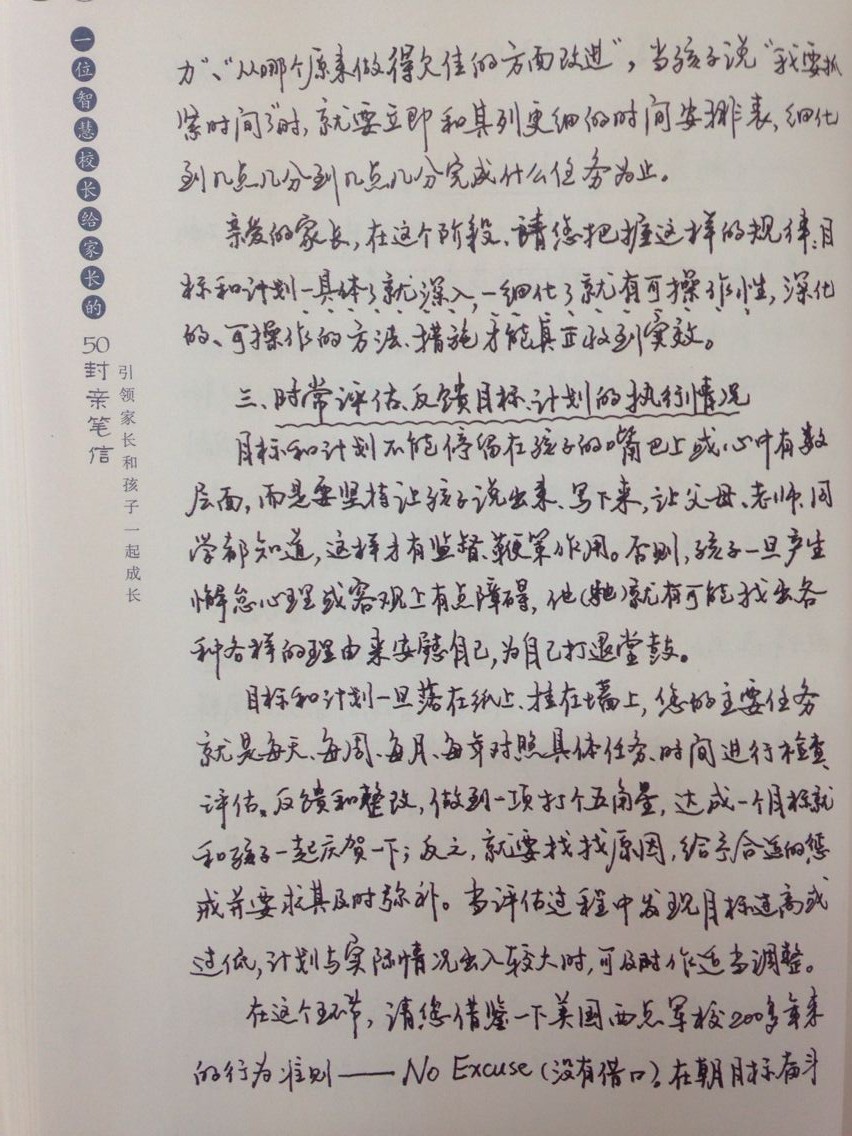 一位智慧校长给家长的
50封亲笔信
引领家长和孩子一起成长
力”、“从哪个原来做得欠佳的方面改进”，当孩子说“我要抓
紧时间”时，就要立即和其列更细的时间安排表，细化
到几点几分到几点几分完成什么任务为止。
亲爱的家长，在这个阶段、请您把握这样的规律：目
标和计划一具体了就深入，一细化了就有可操作性，深化
的、可操作的方法、措施才能真正收到实效。
三、时常评估、反馈目标、计划的执行情况
目标和计划不能停留在孩子的嘴巴上或心中有数
层面，而是要坚持让孩子说出来、写下来，让父母、老师、同
学都知道，这样才有监督、鞭策作用。否则，孩子一旦产生
懈怠心理或客观上有点障碍，他（她）就有可能找出各
种各样的理由来安慰自己，为自己打退堂鼓。
目标和计划一旦落在纸上、挂在墙上，您的主要任务
就是每天、每周、每月、每年对照具体任务、时间进行检查、
评估、反馈和整改，做到一项打个五角星，达成一个目标就
和孩子一起庆贺一下；反之，就要找找原因，给予合适的惩
戒并要求其及时弥补。当评估过程中发现目标过高或
过低，计划与实际情况出入较大时，可及时作适当调整。
在这个环节，请您借鉴一下美国西点军校200多年来
的行为准则——No Excuse（没有借口）。在朝目标奋斗